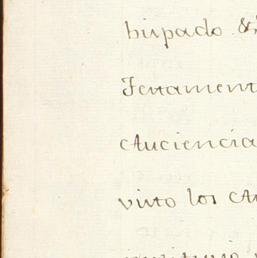 bispado &
Testament
Audiencia
visto los Au